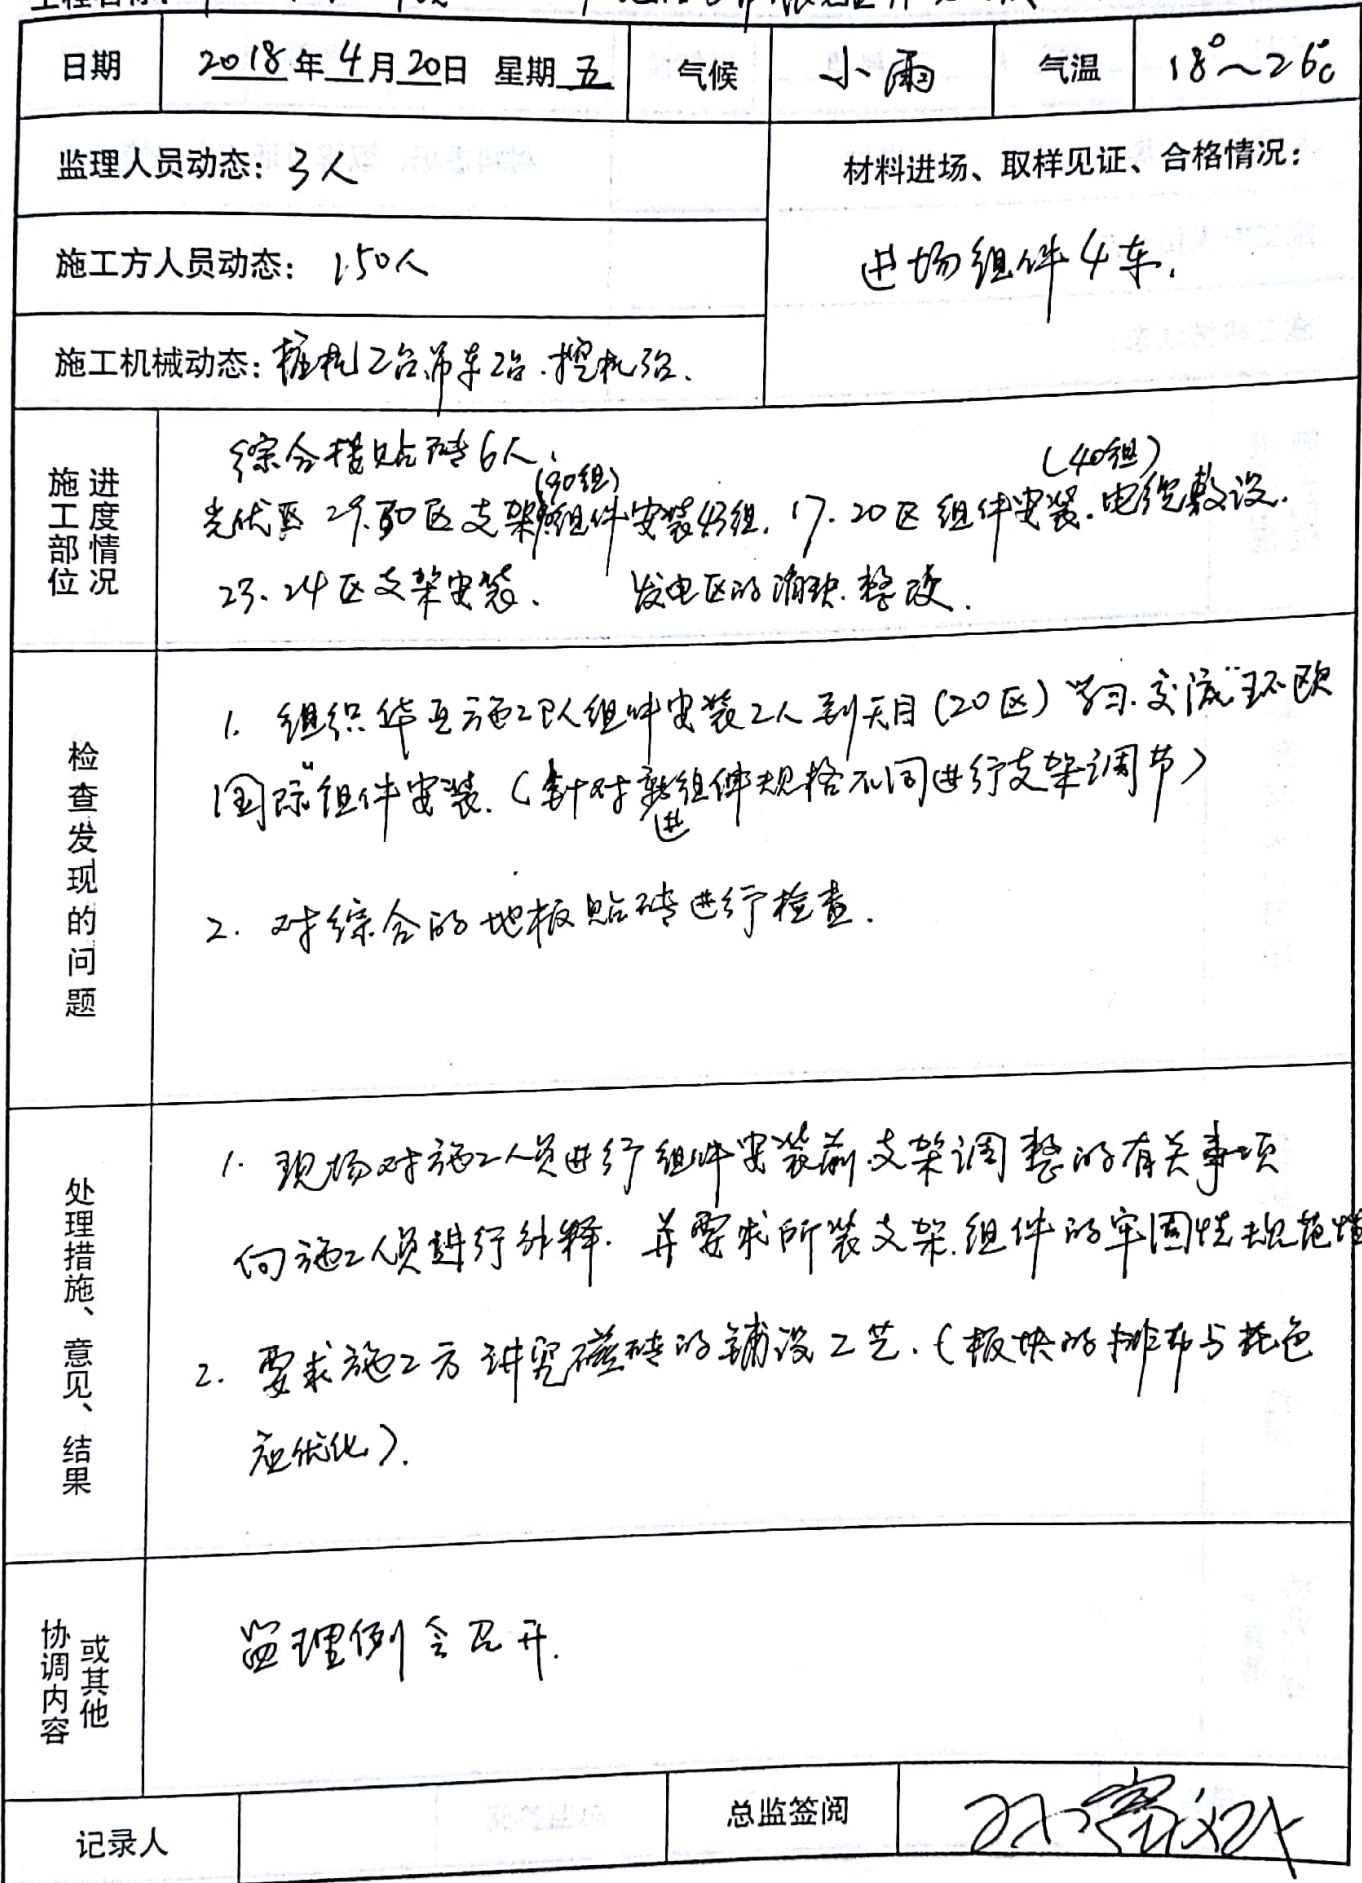 日期 2018年4月20日 星期五 气候 小雨 气温 18°~26℃
监理人员动态：3人
材料进场、取样见证、合格情况：
施工方人员动态：150人
进场组件4车.
施工机械动态：桩机2台.吊车2台.挖机3台.
施工部位
进度情况
综合楼贴砖6人、
(90组) (40组)
光伏区29.30区支架.组件安装45组. 17.20区组件安装.电缆敷设.
23.24区支架安装. 发电区的消缺.整改.
检查发现的问题
1. 组织华亚施工队组件安装工人到天目(20区)学习.交流"环欧
国际"组件安装.(针对新进组件规格不同进行支架调节)
2. 对综合的地板贴砖进行检查.
处理措施、意见、结果
1. 现场对施工人员进行组件安装前.支架调整的有关事项
向施工人员进行外释. 并要求所装支架.组件的牢固性规范性
2. 要求施工方讲究磁砖的铺设工艺.(板块的排布与花色
应优化).
协调内容
或其他
监理例会召开.
记录人 总监签阅